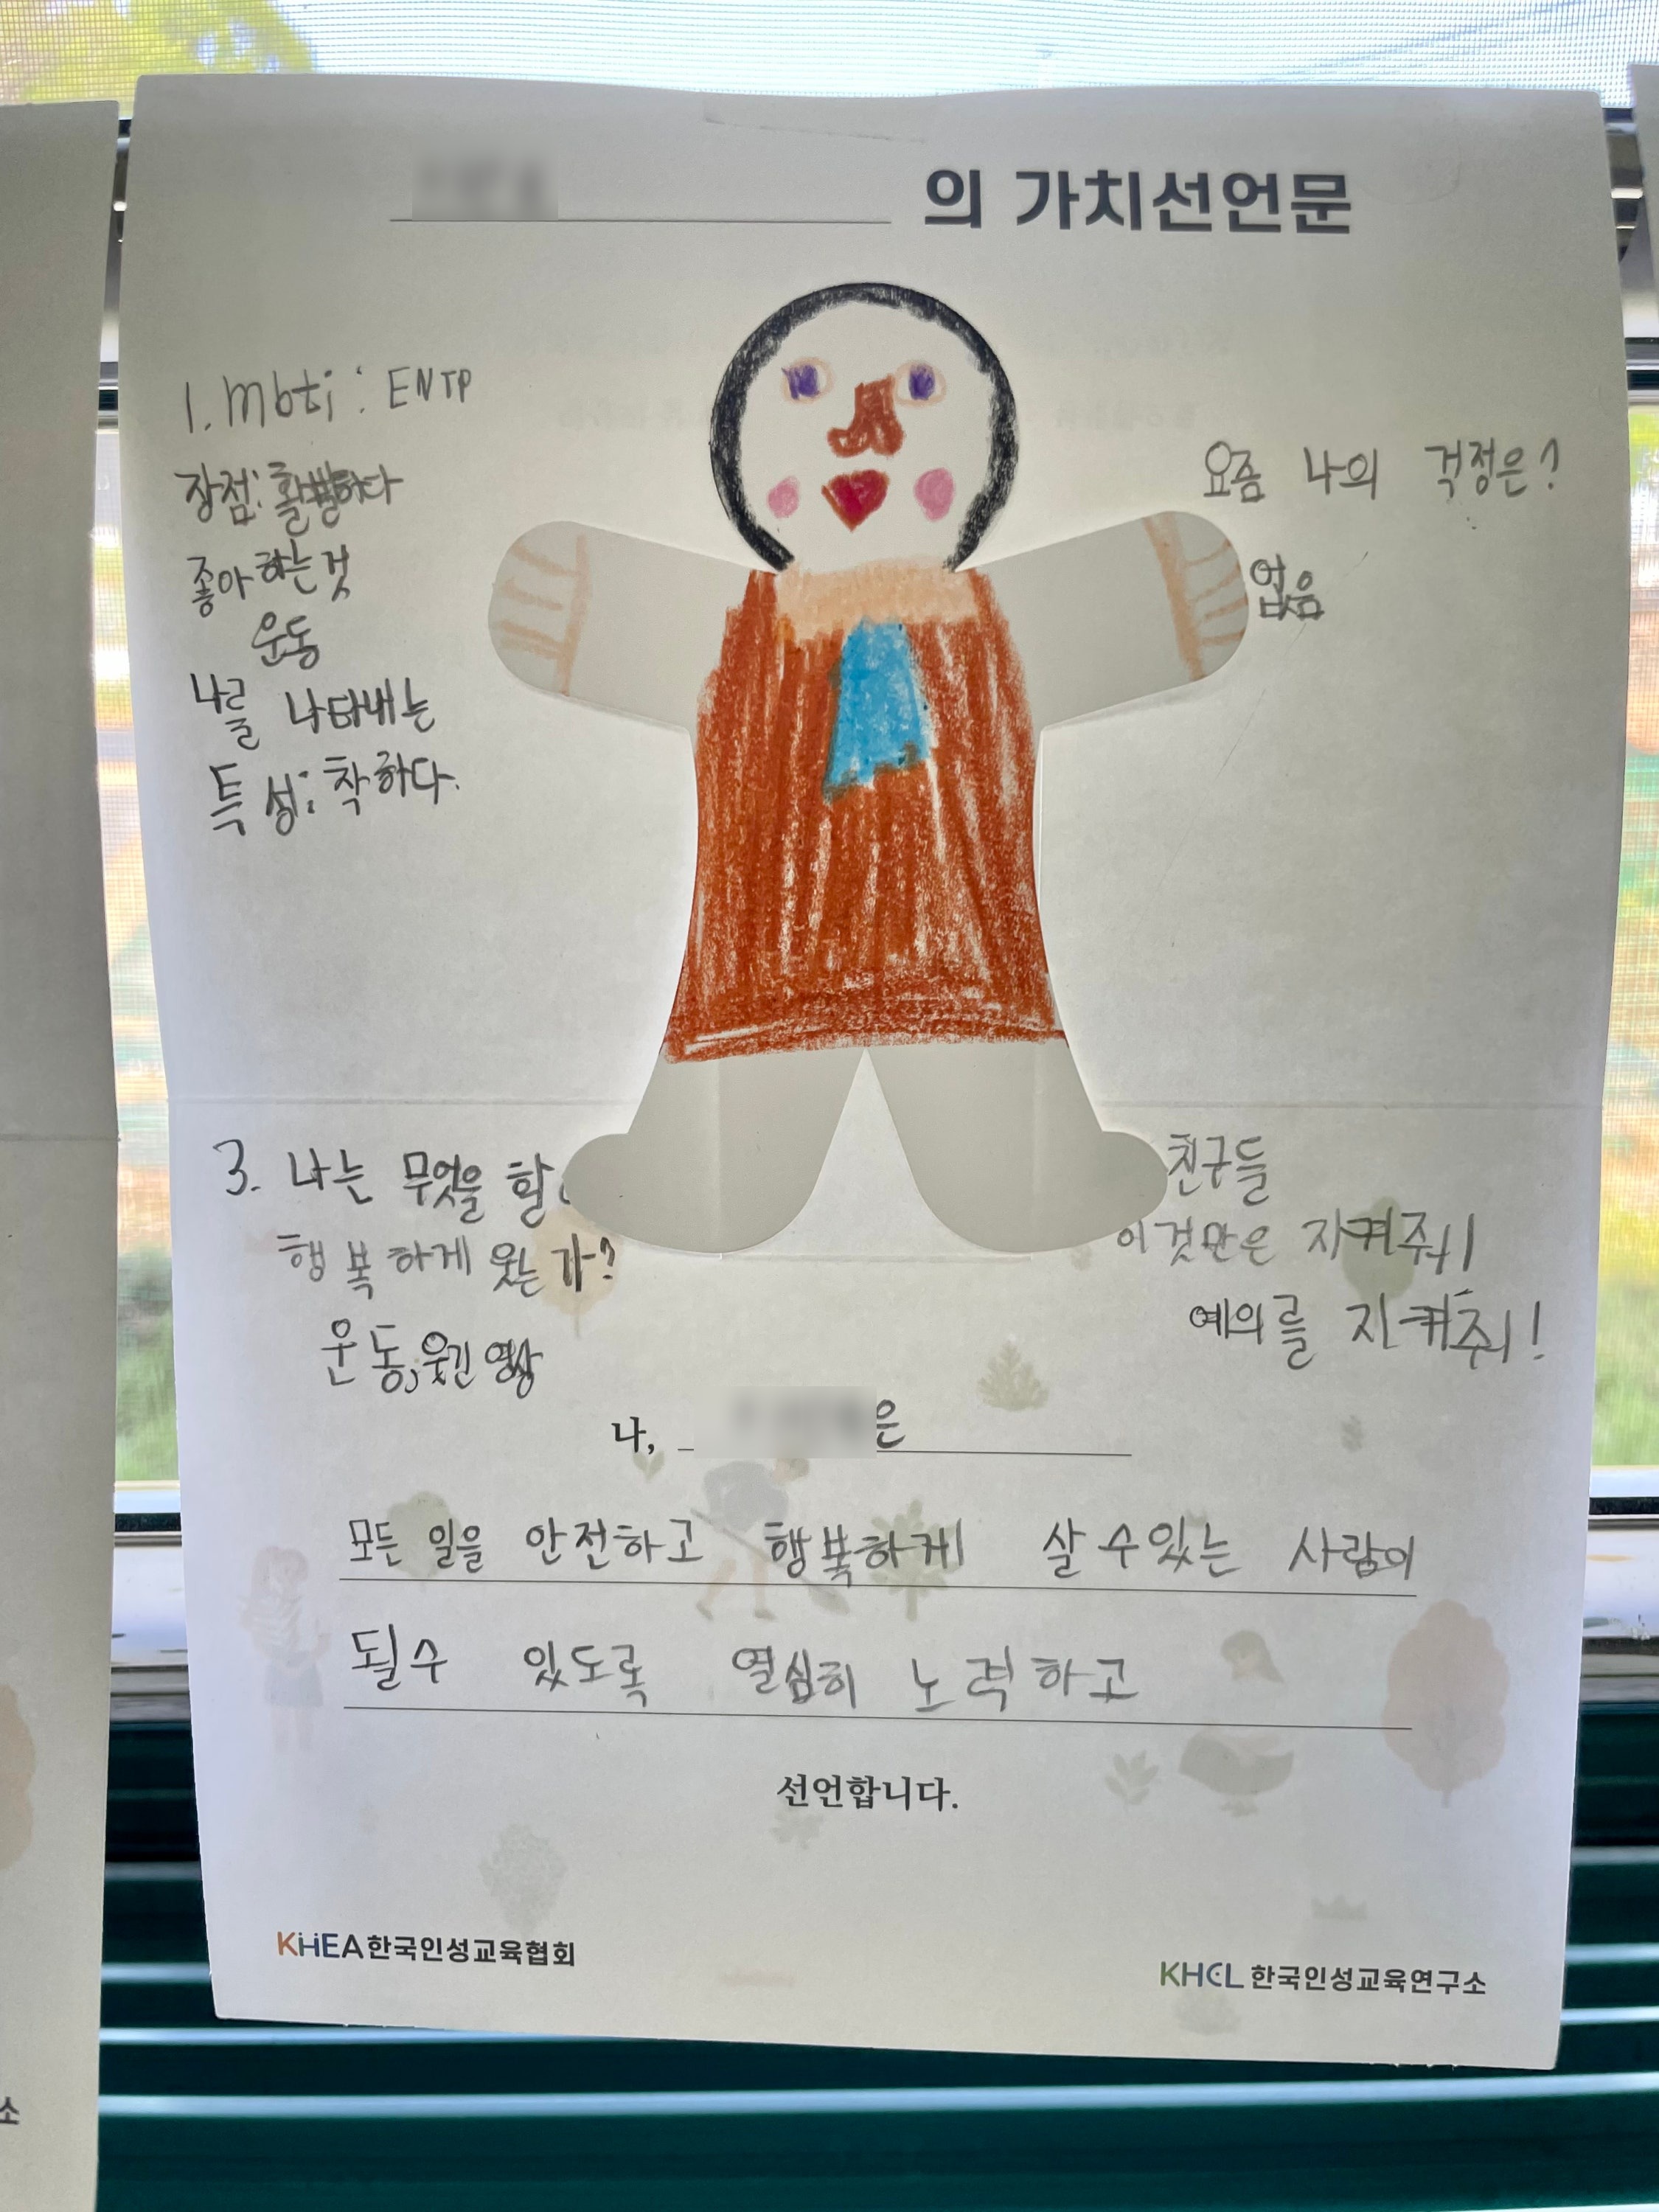 의 가치선언문
1. mbti : ENTP
장점: 활발하다
좋아하는것
운동
나를 나타내는
특성: 착하다.
요즘 나의 걱정은?
없음
3. 나는 무엇을 할
행복하게 웃는가?
운동, 웃긴 영상
친구들
이것만은 지켜줘!
예의를 지켜줘!
나, 은
모든 일을 안전하고 행복하게 살 수있는 사람이
될수 있도록 열심히 노력하고
선언합니다.
KHEA 한국인성교육협회
KHCL 한국인성교육연구소
소